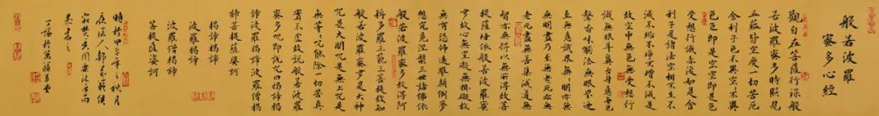 般若波羅
蜜多心經
觀自在菩薩行深般
若波羅蜜多時照見
五蘊皆空度一切苦厄
舍利子色不異空空不異
色色即是空空即是色
受想行識亦復如是舍
利子是諸法空相不生不
滅不垢不淨不增不減是
故空中無色無受想行
識無眼耳鼻舌身意無色
聲香味觸法無眼界乃
至無意識界無無明亦
無無明盡乃至無老死亦無
老死盡無苦集滅道無
智亦無得以無所得故菩
提薩埵依般若波羅蜜
多故心無罣礙無罣礙故
無有恐怖遠離顛倒夢
想究竟涅槃三世諸佛依
般若波羅蜜多故得阿
耨多羅三藐三菩提故知
般若波羅蜜多是大神
咒是大明咒是無上咒是
無等等咒能除一切苦真
實不虛故說般若波羅
蜜多咒即說咒曰揭諦揭
諦波羅揭諦波羅僧揭
諦菩提薩婆訶
揭諦揭諦
波羅揭諦
波羅僧揭諦
菩提薩婆訶
時於甲午年之秋月